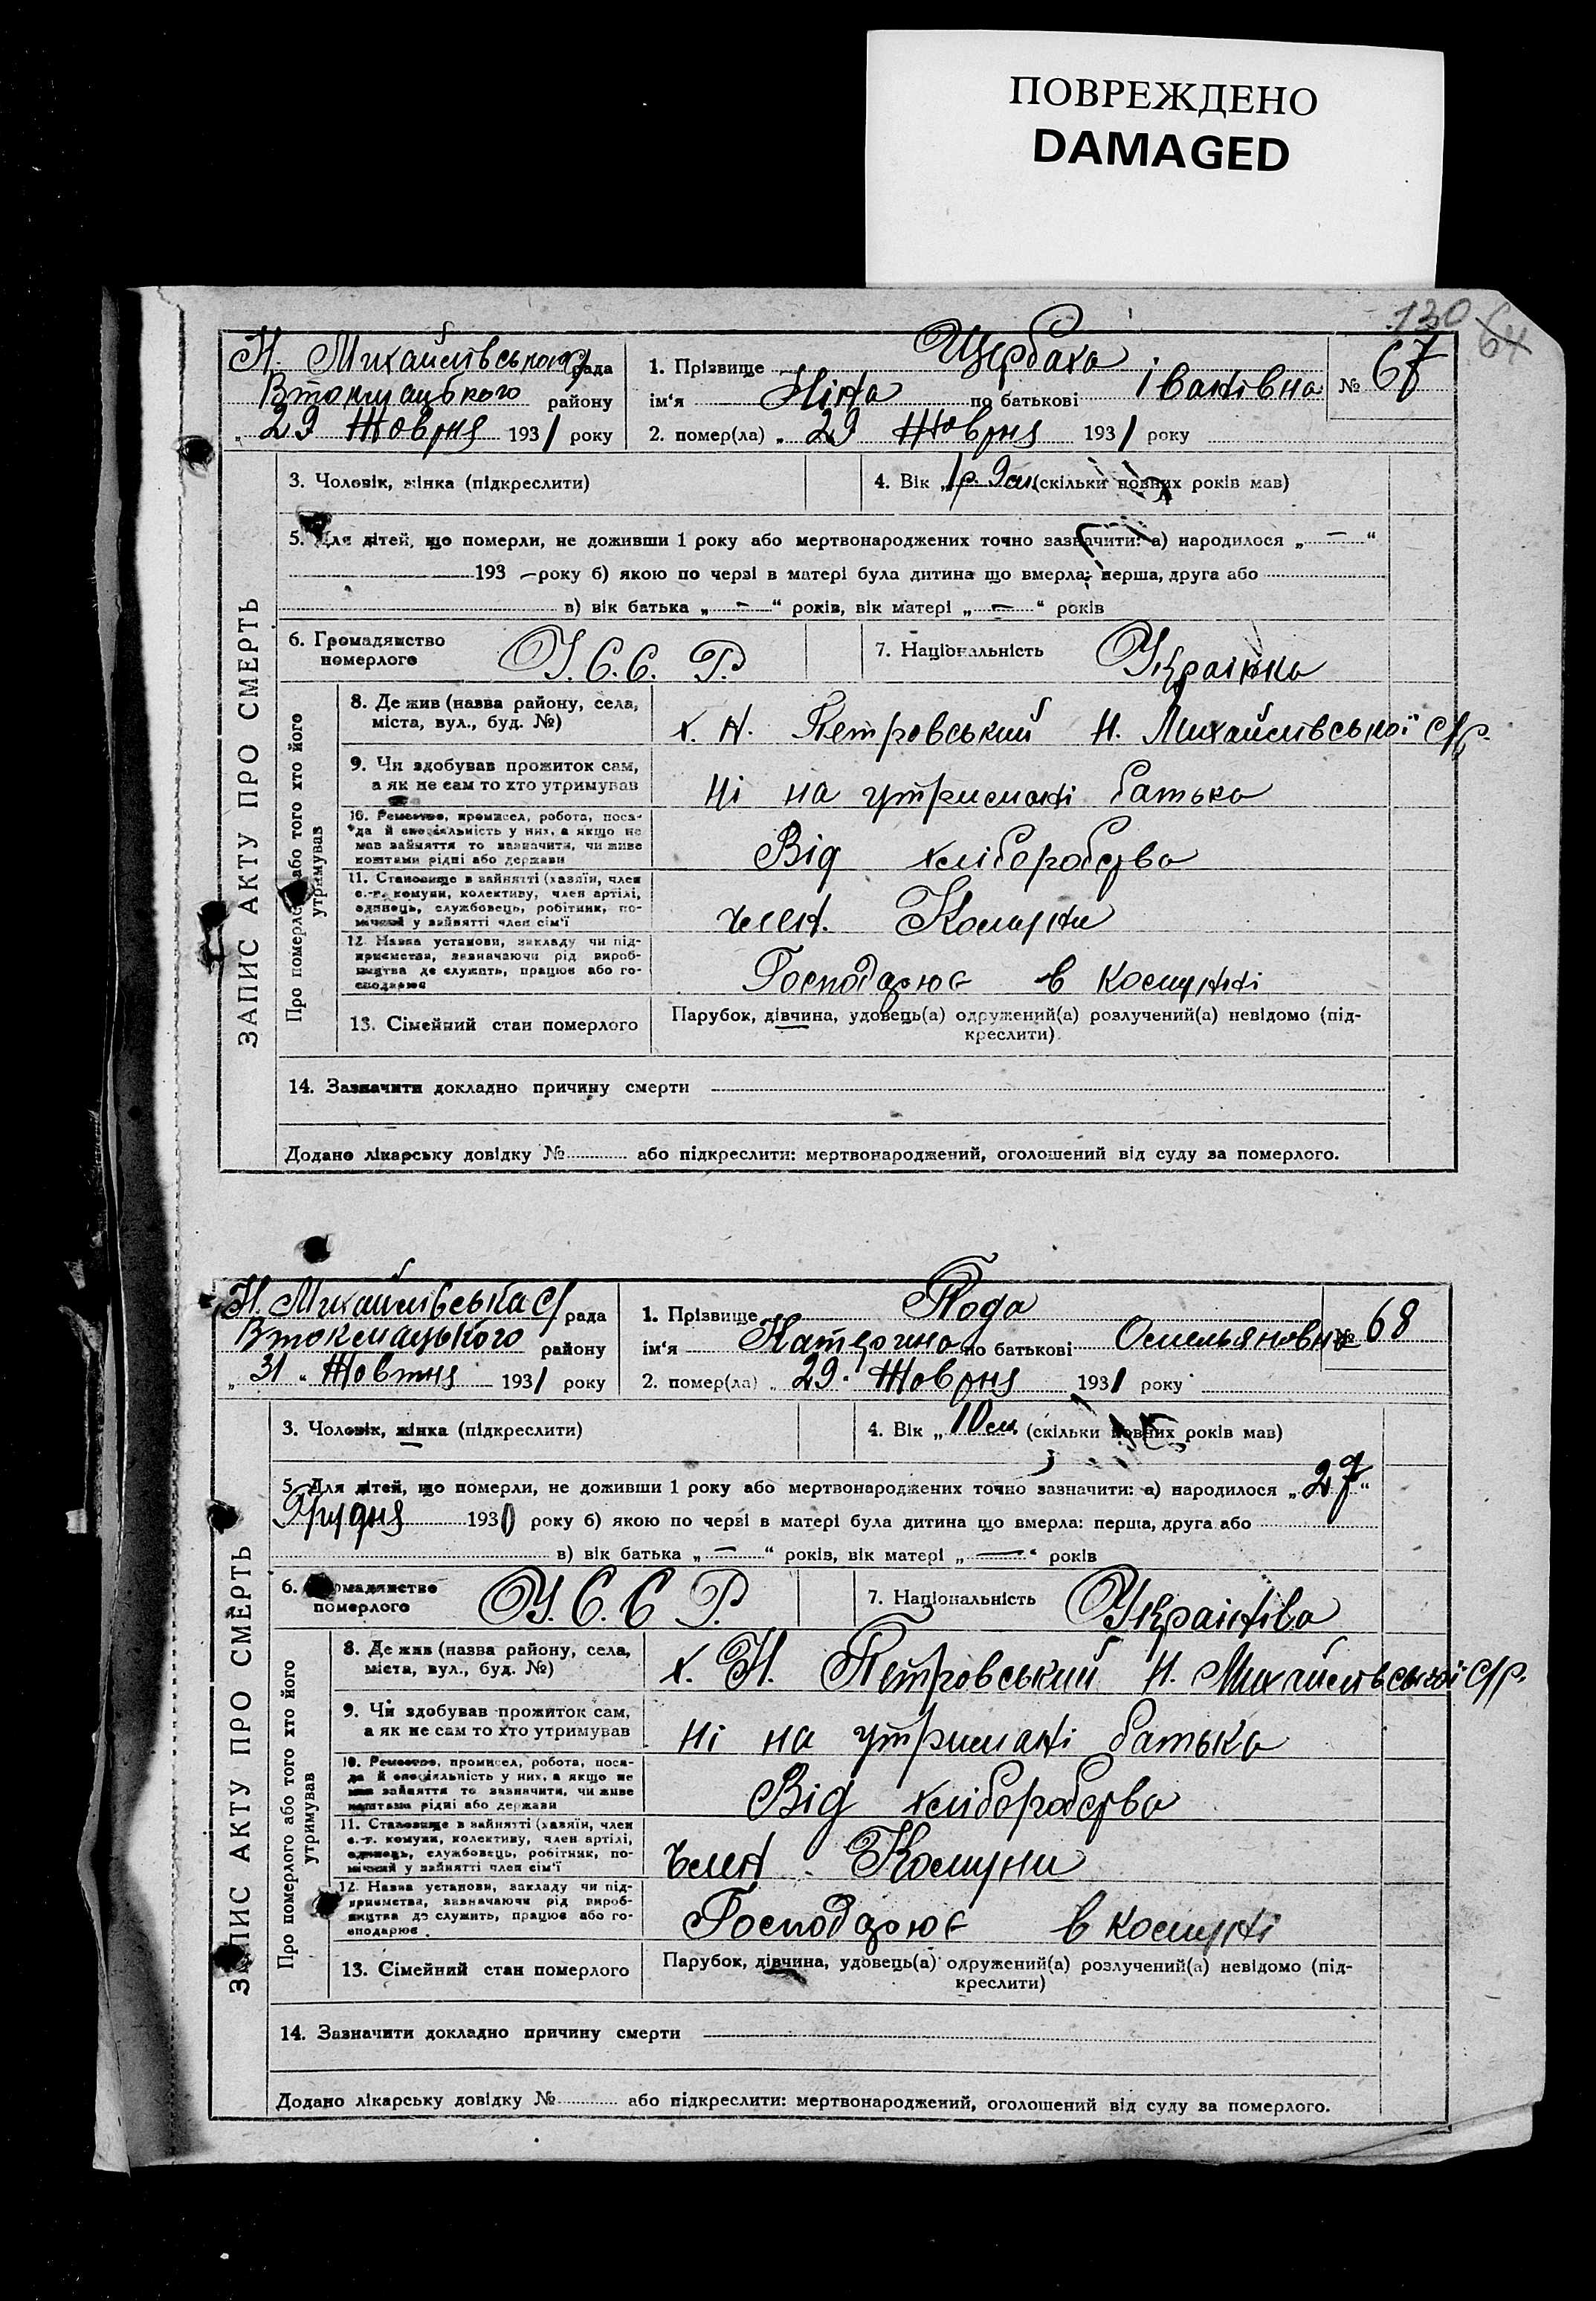 ПОВРЕЖДЕНО
DAMAGED
130 64
Н. Михайлівська с/рада
Втокмацького району
„ 29 Жовтня 1931 року
1. Прізвище Щербака
ім'я Ніна по батькові Іванівна
№ 67
2. помер(ла) „ 29 Жовтня 1931 року
3. Чоловік, жінка (підкреслити)
4. Вік „ 1 р. 9 м. (скільки повних років мав)
5. Для дітей, що померли, не доживши 1 року або мертвонароджених точно зазначити: а) народилося „ — “
193 — року б) якою по черзі в матері була дитина що вмерла: перша, друга або
в) вік батька „ — “ років, вік матері „ — “ років
6. Громадянство
померлого
У.С.С.Р.
7. Національність Українка
ЗАПИС АКТУ ПРО СМЕРТЬ
Про померлого або того хто його
утримував
8. Де жив (назва району, села,
міста, вул., буд. №)
х. Н. Петровський Н. Михайлівської с/р.
9. Чи здобував прожиток сам,
а як не сам то хто утримував
Ні на утримані батька
10. Ремество, промисел, робота, поса-
да й спеціяльність у них, а якщо не
мав зайняття то зазначити, чи живе
коштами рідні або держави
Від хліборобства
11. Становище в зайнятті (хазяїн, член
с.-г. комуни, колективу, член артілі,
одинець, службовець, робітник, по-
мічний у зайнятті член сім'ї
член. Комуни
12. Назва установи, закладу чи під-
приємства, зазначаючи рід вироб-
ництва де служить, працює або го-
сподарює
Господарює в комунні
13. Сімейний стан померлого
Парубок, дівчина, удовець(а) одружений(а) розлучений(а) невідомо (під-
креслити).
14. Зазначити докладно причину смерти
Додано лікарську довідку № або підкреслити: мертвонароджений, оголошений від суду за померлого.
Н. Михайлівська с/рада
Втокмацького району
„ 31 “ Жовтня 1931 року
1. Прізвище Пода
ім'я Катерина по батькові Омельяновна
№ 68
2. помер(ла) „ 29. Жовтня 1931 року
3. Чоловік, жінка (підкреслити)
4. Вік „ 10 м. (скільки повних років мав)
5. Для дітей, що померли, не доживши 1 року або мертвонароджених точно зазначити: а) народилося „ 27 “
Грудня 1930 року б) якою по черзі в матері була дитина що вмерла: перша, друга або
в) вік батька „ — “ років, вік матері „ — “ років
6. Громадянство
померлого
У.С.С.Р.
7. Національність
ЗАПИС АКТУ ПРО СМЕРТЬ
Про померлого або того хто його
утримував
8. Де жив (назва району, села,
міста, вул., буд. №)
х. Н. Петровський Н. Михайлівської с/р.
9. Чи здобував прожиток сам,
а як не сам то хто утримував
Ні на утримані батька
10. Ремество, промисел, робота, поса-
да й спеціяльність у них, а якщо не
мав зайняття то зазначити, чи живе
коштами рідні або держави
Від хліборобства
11. Становище в зайнятті (хазяїн, член
с.-г. комуни, колективу, член артілі,
одинець, службовець, робітник, по-
мічний у зайнятті член сім'ї
член. Комуни
12. Назва установи, закладу чи під-
приємства, зазначаючи рід вироб-
ництва де служить, працює або го-
сподарює
Господарює в комуні
13. Сімейний стан померлого
Парубок, дівчина, удовець(а) одружений(а) розлучений(а) невідомо (під-
креслити)
14. Зазначити докладно причину смерти
Додано лікарську довідку № або підкреслити: мертвонароджений, оголошений від суду за померлого.